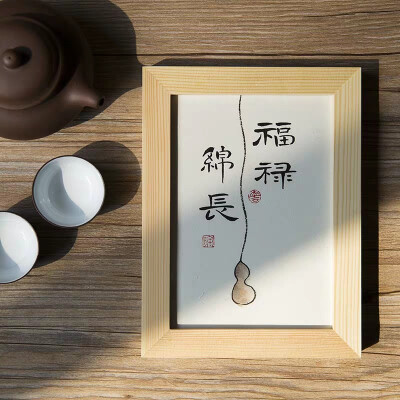 福禄
綿長